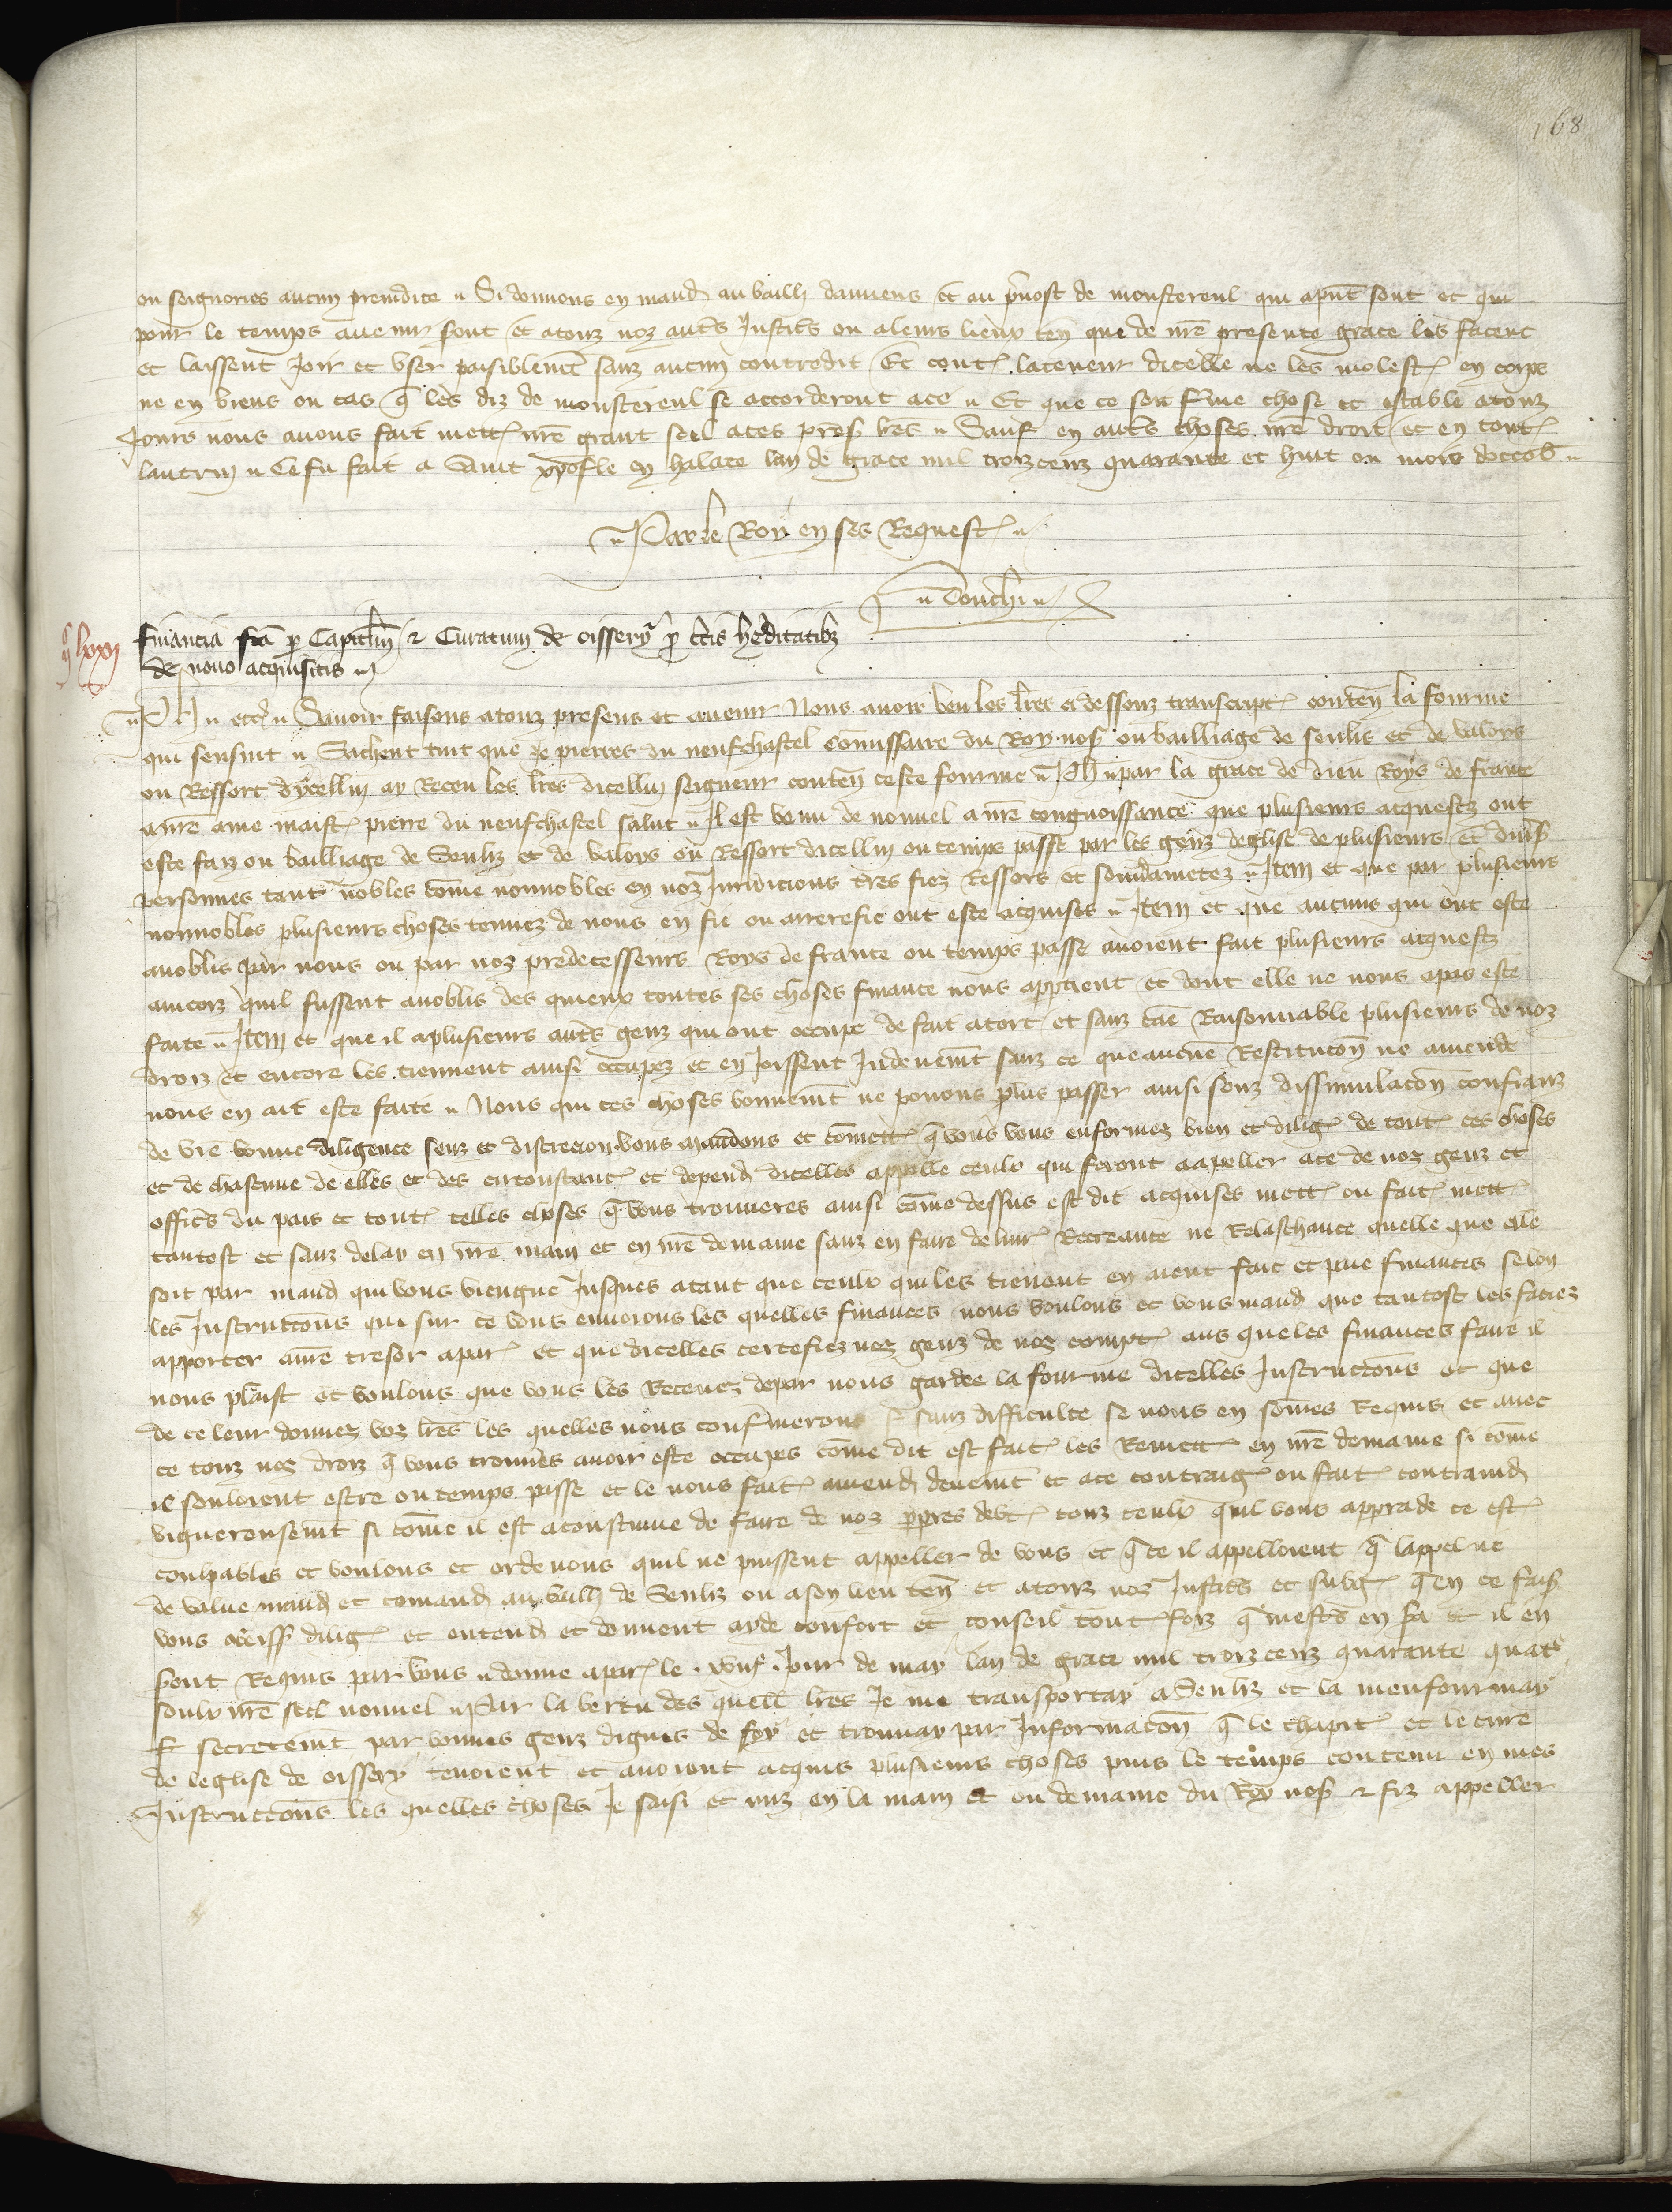 168
ou seignories aucun preiudice ~ Si donnons en mand au bailli damiens et au pvost de monstereul qui apnt sont et qui
pour le temps auenir sont et atouz noz autres Justic ou aleurs lieux ten que de nre presente grace les facent
et laissent Joir et vser paisiblemt sanz aucun contredit Et cont lateneur dicelle ne les molest en corps
ne en biens ou cas q les diz de monstereul se accorderont ace ~ Et que ce soit ferme chose et estable atouz
Jours nous auons fait mett nre grant seel aces pres lres ~ Sauf en autres choses nre droit et en tout
lautruy ~ Ce fu fait a Saint xpofle en halate lan de grace mil troiz cenz quarante et huit ou mois doctob ~
~ Par le Roy en ses Request ~
~ Touchi ~
lxxj
financia fca p Capitlm & Curatum de oissery p ctis heditatibz
de nouo acquisitis
~ Ph ~ etc ~ Sauoir faisons atouz presens et auenir Nous auoir veu les lres ci dessouz transcript conten la fourme
qui sensuit ~ Sachent tuit que Je pierres du neufchastel commissaire du Roy nos ou bailliage de senlis et de valoys
ou Ressort dycelluy ay Receu les lres dicelluy seigneur conten ceste fourme ~ Ph ~ par la grace de dieu Roys de france
anre ame maist pierre du neufchastel salut ~ Il est venu de nouuel a nre congnoissance que plusieurs acquestz ont
este faiz ou bailliage de Senliz et de valoys ou Ressort dicelluy ou temps passe par les genz deglise de plusieurs et diuses
personnes tant nobles comme nonnobles en noz Juridicions tres fiez Ressors et souudainetez ~ Item et que par plusieurs
nonnobles plusieurs choses tenuez de nous en fie ou arrerefie ont este acquises ~ Item et que aucuns qui ont este
anoblis par nous ou par noz predecesseurs Roys de france ou temps passe auoient fait plusieurs acquestz
aincoiz quil fussent anoblis des quieux toutes ses choses finance nous apptient et dont elle ne nous apas este
faite ~ Item et que il aplusieurs autres genz qui ont occupe de fait atort et sanz cae Raisonnable plusieurs de noz
droiz et encore les tiennent ainsi occupez et en Joissent Indeuemt sanz ce que aucune Restitucon ne amende
nous en ait este faite ~ Nous qui ces choses bonnemt ne pouons plus passer ainsi souz dissimulacon confianz
de vre bonne diligence senz et discrecion vous mandons et comett q vous vous enformez bien et dilig de tout ces choses
et de chascune de elles et des circonstanc et depend dicelles appelle ceulx qui feront aapeller ace de noz genz et
offics du pais et tout celles choses q vous trouueres ainsi comme dessus est dit acquises mett ou fait mett
tantost et sanz delay en nre main et en nre demaine sanz en faire deliur Recreance ne Relaschance quelle que elle
soit par mand qui vous viengne Jusques atant que ceulx qui les tienent en aient fait et paie finances selon
les Instructons que sur ce vous enuoions les quelles finances nous voulons et vous mand que tantost les faciez
apporter anre tresor apar et que dicelles certefiez noz genz de noz compt aus queles finances faire il
nous plaist et voulons que vous les Receuez depar nous gardee la fourme dicelles Instructons et que
de ce leur donnez voz lres les quelles nous confirmerons sanz difficulte se nous en sommes Requis et auec
ce touz noz droiz q vous trouuers auoir este occupes comme dit est fait les Remett en nre demaine si comme
il souloient estre ou temps passe et le nous fait amend deuemt et ace contraig ou fait contraind
viguereusemt si comme il est acoustume de faire de noz ppres debt touz ceulx quil vous apprade ce est
coulpables et voulons et ordenons quil ne puissent appeller de vous et q se il appelloient q lappel ne
de value mand et comand au bailli de Senliz ou ason lieu ten et atouz noz Justics et subg q en ce fais
vous obeiss dilig et entend et donnent ayde confort et conseil tout foiz q mests en sa et il en
sont Requis par vous ~ donne apar le . xviije . Jour de may lan de grace mil troiz cenz quarante quat
soulx nre seel nouuel ~ Par la vertu des quell lres Je me transportay a Senliz et la menfourmay
secretemt par bonnes genz dignes de foy et trouuay par Informacon q le chapit et le cure
de leglise de oissery tenoient et auoient acquis plusieurs choses puis le temps contenu en mes
Instructons les quelles choses Je saisi et miz en la main et ou demaine du Roy nos & fiz appeller